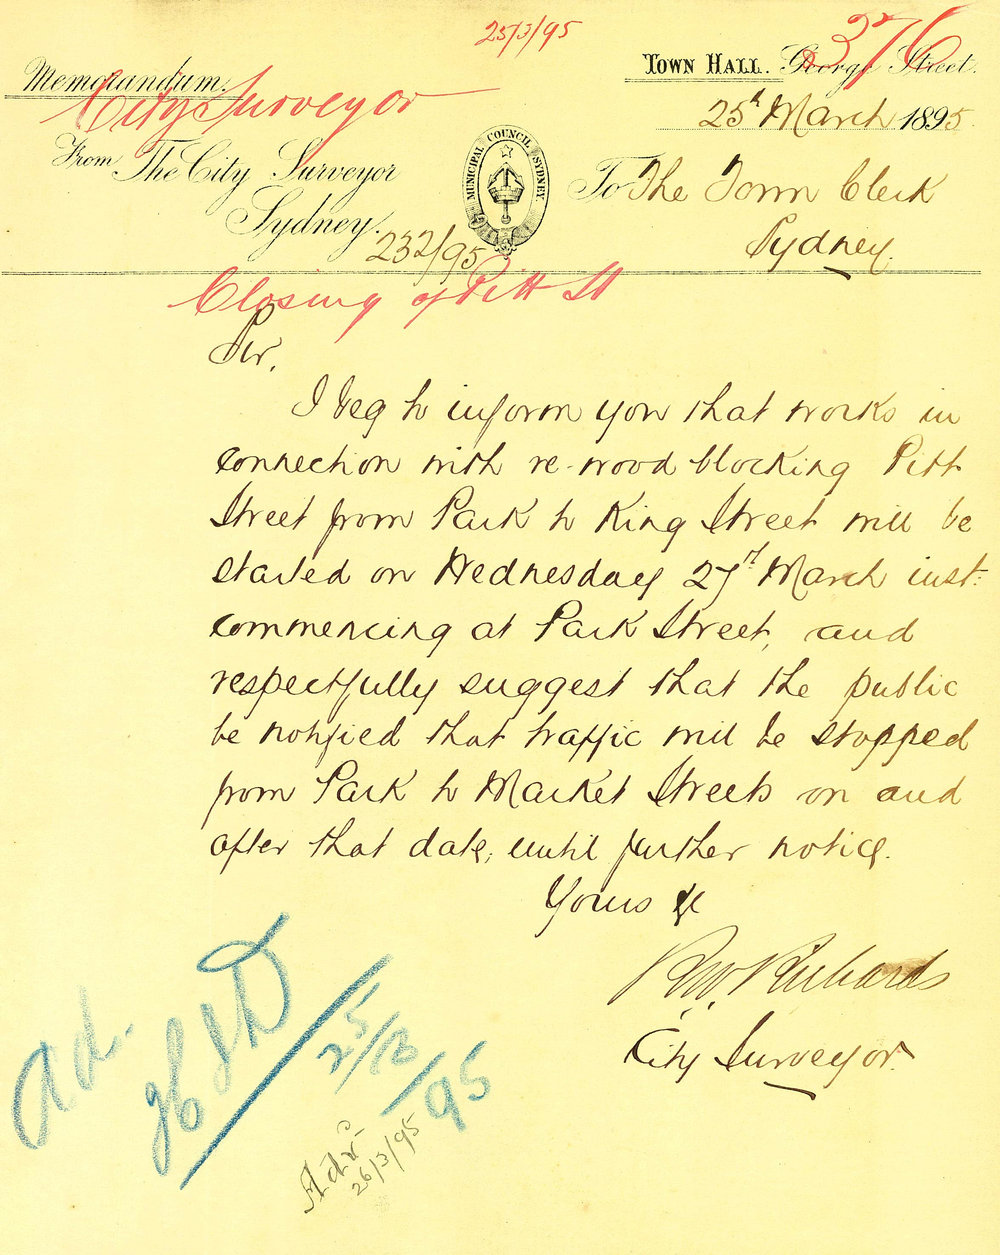 25/3/95
376
Memorandum.
City Surveyor
TOWN HALL. George Street.
25th March 1895
From The City Surveyor
Sydney.
MUNICIPAL COUNCIL SYDNEY
To The Town Clerk
Sydney.
232/95
Closing of Pitt St
Sir,
I beg to inform you that works in
connection with re-wood blocking Pitt
Street from Park to King Street will be
started on Wednesday 27th March inst:
commencing at Park Street, and
respectfully suggest that the public
be notified that traffic will be stopped
from Park to Market Streets on and
after that date, until further notice.
Yours &c
R W. Richards
City Surveyor
Ad.
25/3/95
Adv
26/3/95